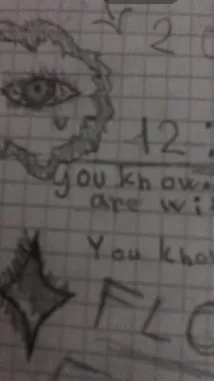 2
12
you know
are wi
You kno
FLO